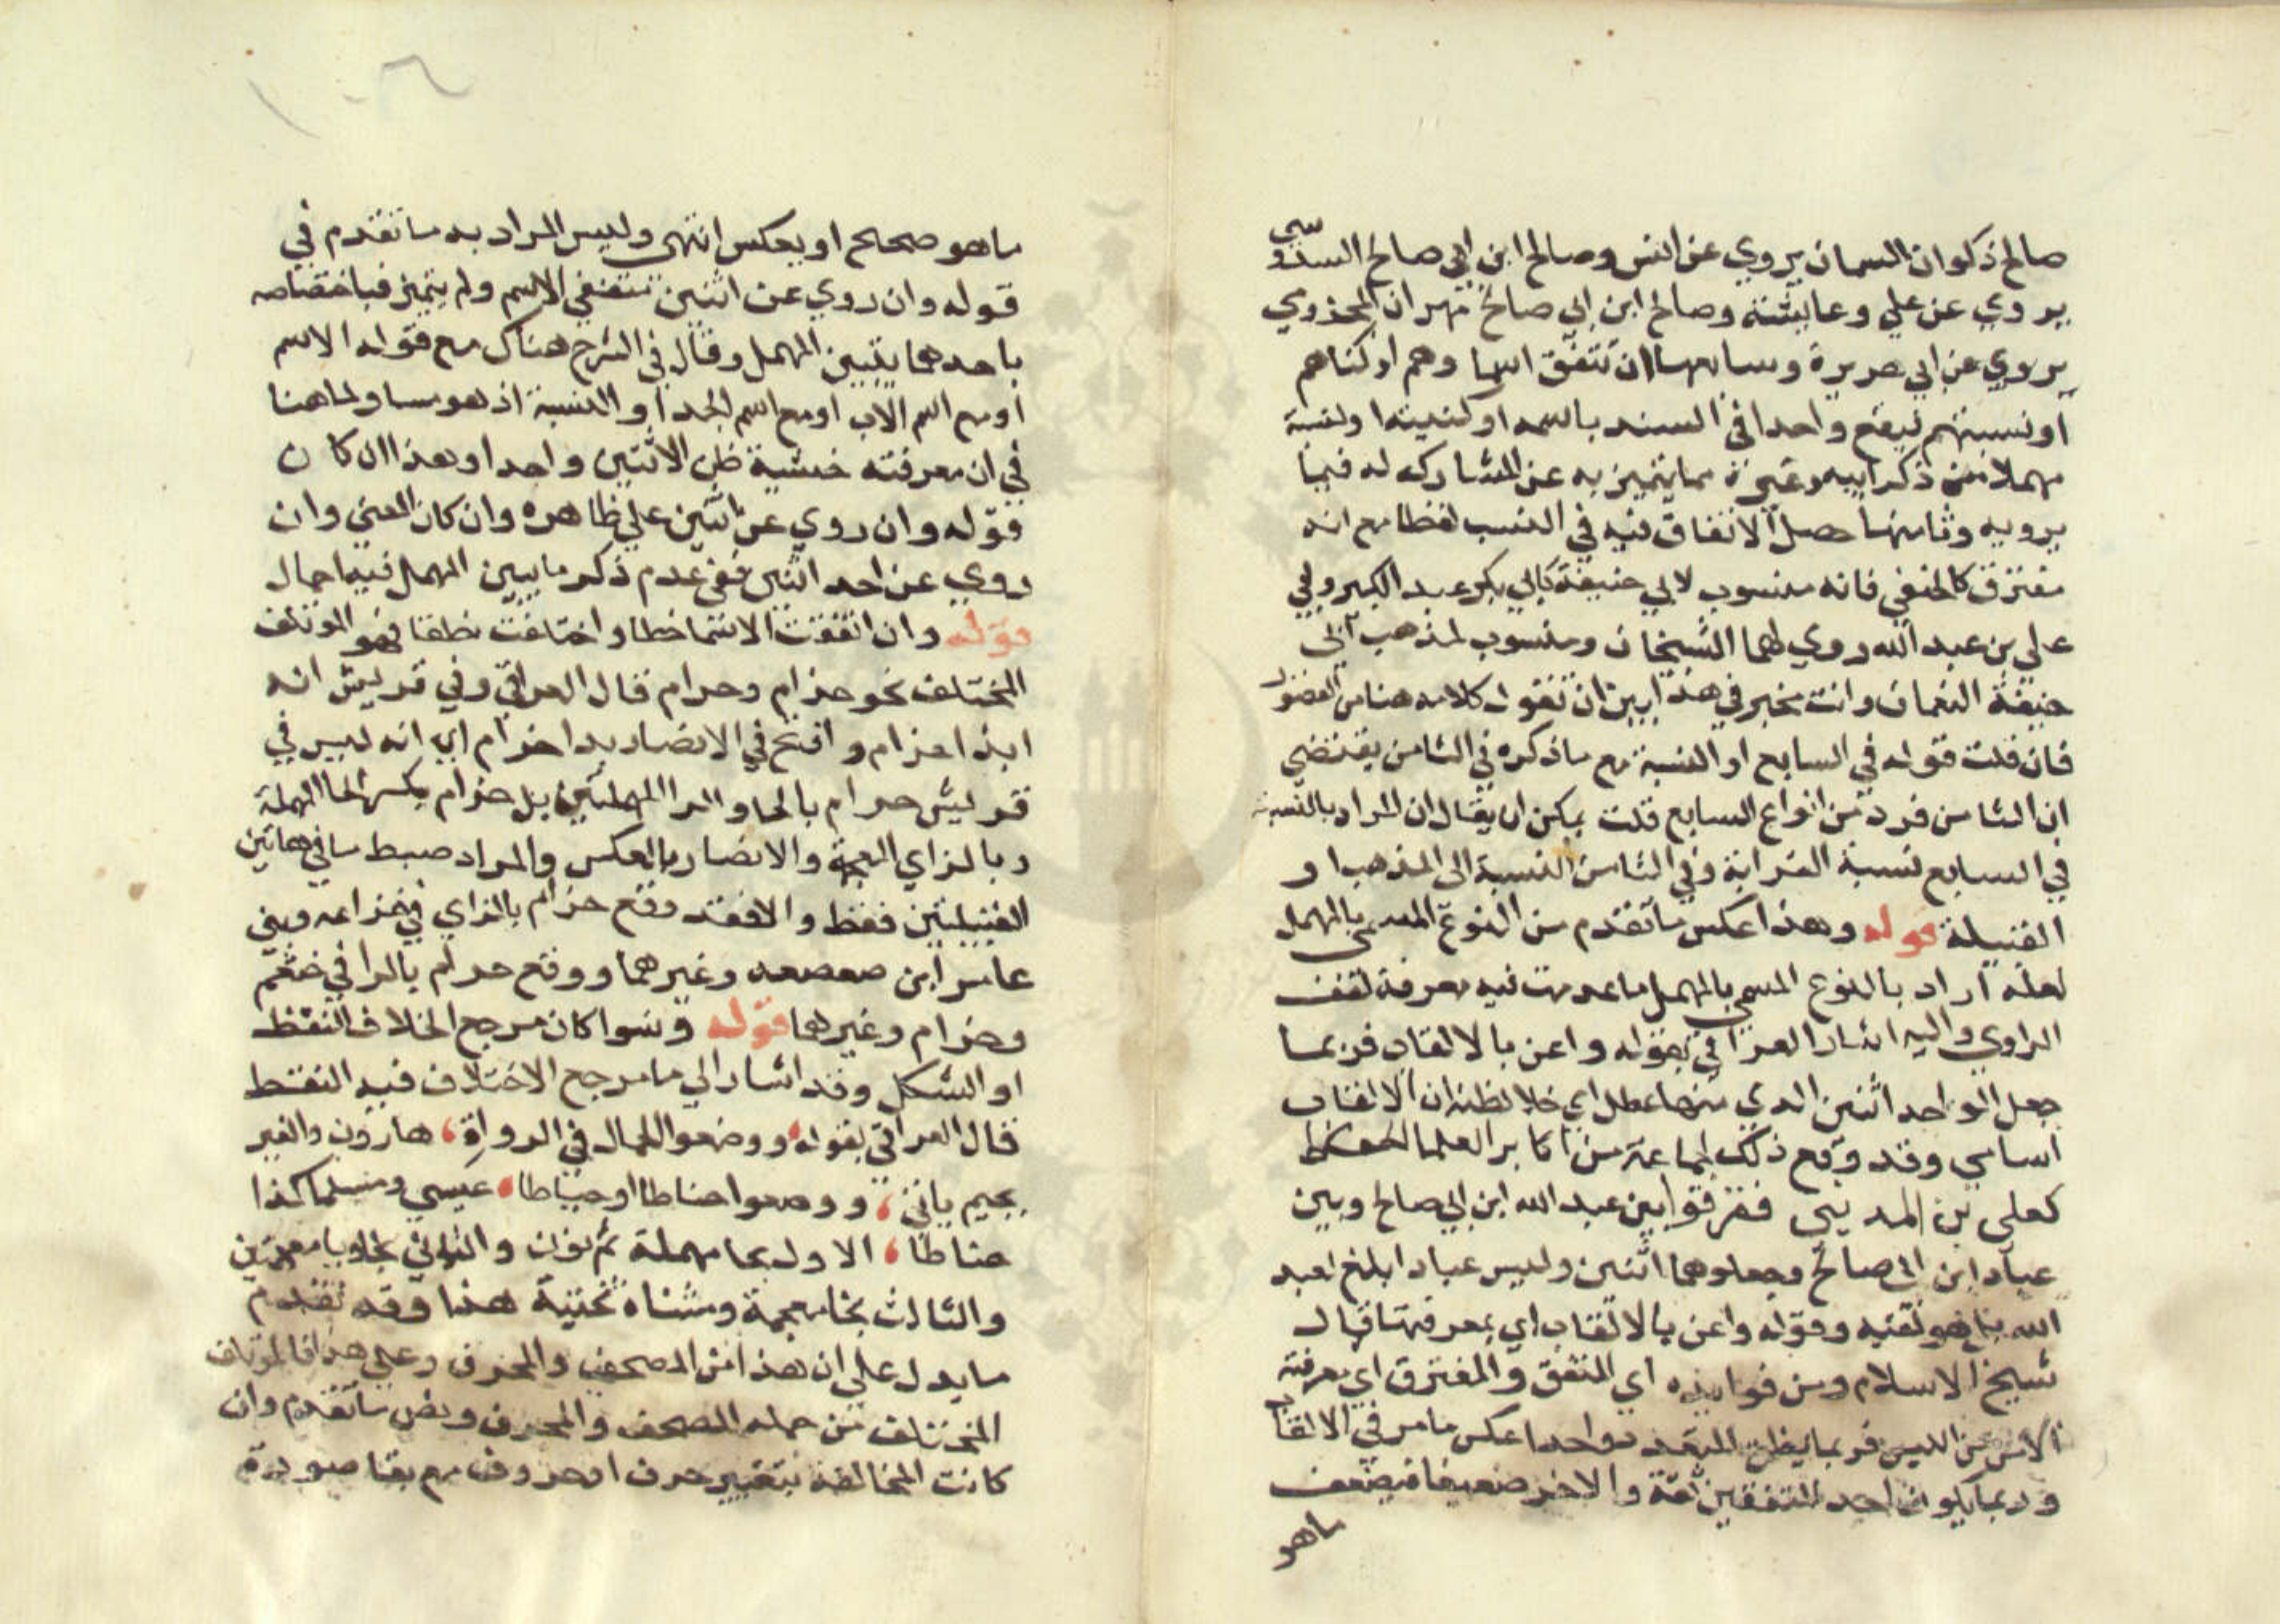 صالح ذكوان السمان يروي عن انس وصالح ابن ابي صالح السدوسي
يروي عن علي وعايشة وصالح ابن ابي صالح مهران المخزومي
يروي عن ابي هريرة وسابعها ان تتفق اسماوهم او كناهم
او نسبتهم فيقع واحدا في السند باسمه او كنيته او نسبة
مهملا من ذكر ابيه وغيره مما يتميز به عن المشارك له فيما
يرويه وثامنها حصل الاتفاق فيه في النسب لفظا مع انه
مفترق كالحنفي فانه منسوب لابي حنيفة كابي بكر عبد الكبير وابي
علي بن عبد الله روي لهما الشيخان ومنسوب لمذهب ابي
حنيفة النعمان وانت مخير في هذا بين ان تقول كلامه هنا من الفضول
فان قلت قوله في السابع او النسبة مع ما ذكره في الثامن يقتضي
ان الثامن فرد من انواع السابع قلت يمكن ان يقال ان المراد بالنسبة
في السابع نسبة القرابة وفي الثامن النسبة الى المذهب او
القبيلة قوله وهذا عكس ما تقدم من النوع المسمى بالمهمل
لعله اراد بالنوع المسمى بالمهمل ما عدمت فيه معرفة لقب
الراوي واليه اشار العراقي بقوله واعن بالالقاب فربما
جعل الواحد اثنين الذي منها عطل اي خلا لظنه ان الالقاب
اسامي وقد وقع ذلك لجماعة من اكابر العلما الحفاظ
كعلي بن المديني ففرقوا بين عبد الله ابن ابي صالح وبين
عباد ابن ابي صالح وجعلوهما اثنين وليس عباد ابلغ لعبد
الله بل هو لقبه وقوله واعن بالالقاب اي بمعرفتها قال
شيخ الاسلام ومن فوايده اي المتفق والمفترق اي معرفته
الامن من اللبس فربما يظن المتعدد واحدا عكس ما مر في الالقاب
وربما يكون احد المتفقين ثقة والاخر ضعيفا فيضعف
ماهو
ماهو صحيح او يعكس انتهى وليس المراد به ما تقدم في
قوله وان روي عن اثنين متفقي الاسم ولم يتميز فباختصاصه
باحدهما يتبين المهمل وقال في الشرح هناك مع قوله الاسم
او مع اسم الاب او مع اسم الجد او النسبة اذ هو مساو لما هنا
في ان معرفته خشية ظن الاثنين واحدا وهذا ان كان
قوله وان روي عن اثنين علي ظاهره وان كان المعني وان
روي عن احد اثنين ففي عدم ذكر ما يبين المهمل فيه اجمال
قوله وان اتفقت الاسما خطا واختلفت نطقا فهو الموتلف
المختلف نحو حزام وحرام قال العراقي وفي قريش انه
ابدا حزام وافتح في الانصار بدا حرام اي انه ليس في
قريش حرام بالحا والرا المهملتين بل حزام بكسر الحا المهملة
وبالزاي المعجمة والانصار بالعكس والمراد ضبط ما في هاتين
القبيلتين فقط والا فقد وقع حزام بالزاي في خزاعه وبني
عامر ابن صعصعه وغيرهما ووقع حرام بالرا في خثعم
وجذام وغيرهما قوله وسوا كان مرجع الخلاف النقط
او الشكل وقد اشار الي ما مرجع الاختلاف فيه النقط
قال العراقي بقوله، ووصفوا الحمال في الرواة، هارون والغير
بجيم ياتي، ووصفوا حناطا او خباطا، عيسي ومسلما كذا
خياطا، الاول بحا مهملة ثم نون والثاني بخا وبا معجمتين
والثالث بخا معجمة ومثناة تحتية هذا وقد تقدم
ما يدل علي ان هذا من المصحف والمحرف وعلي هذا فالموتلف
المختلف من جمله المصحف والمحرف ونص ما تقدم وان
كانت المخالفة بتغيير حرف او حروف مع بقا صورة